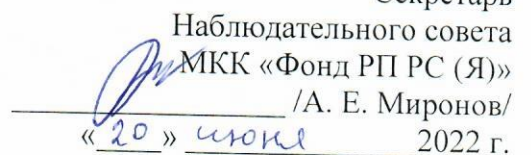 Секретарь
Наблюдательного совета
МКК «Фонд РП РС (Я)»
/А. Е. Миронов/
«20» июня 2022 г.